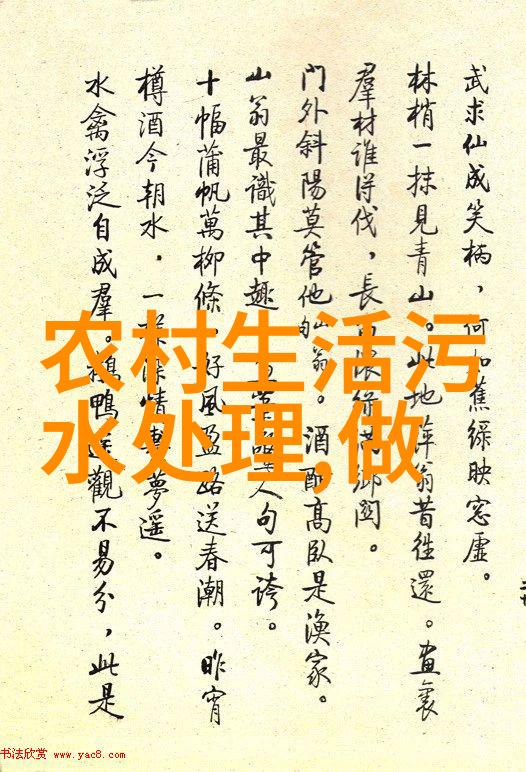 武求仙成笑柄，何如蕉綠映窓虛。
林梢一抹見青山。此地萍翁昔往還。畫裏
羣材誰得伐，長
鄉關。
門外斜陽莫管他
酒酣高臥是漁家。
山翁最識其中趣
人句可誇。
十幅蒲帆萬柳條，好風盈路送春潮。昨宵
樽酒今朝水，一
情
夢遥。
水禽浮泛自成羣。
鴨
觀不易分，此是
农村生活污
水处理,做
书法欣赏 www.yac8.com